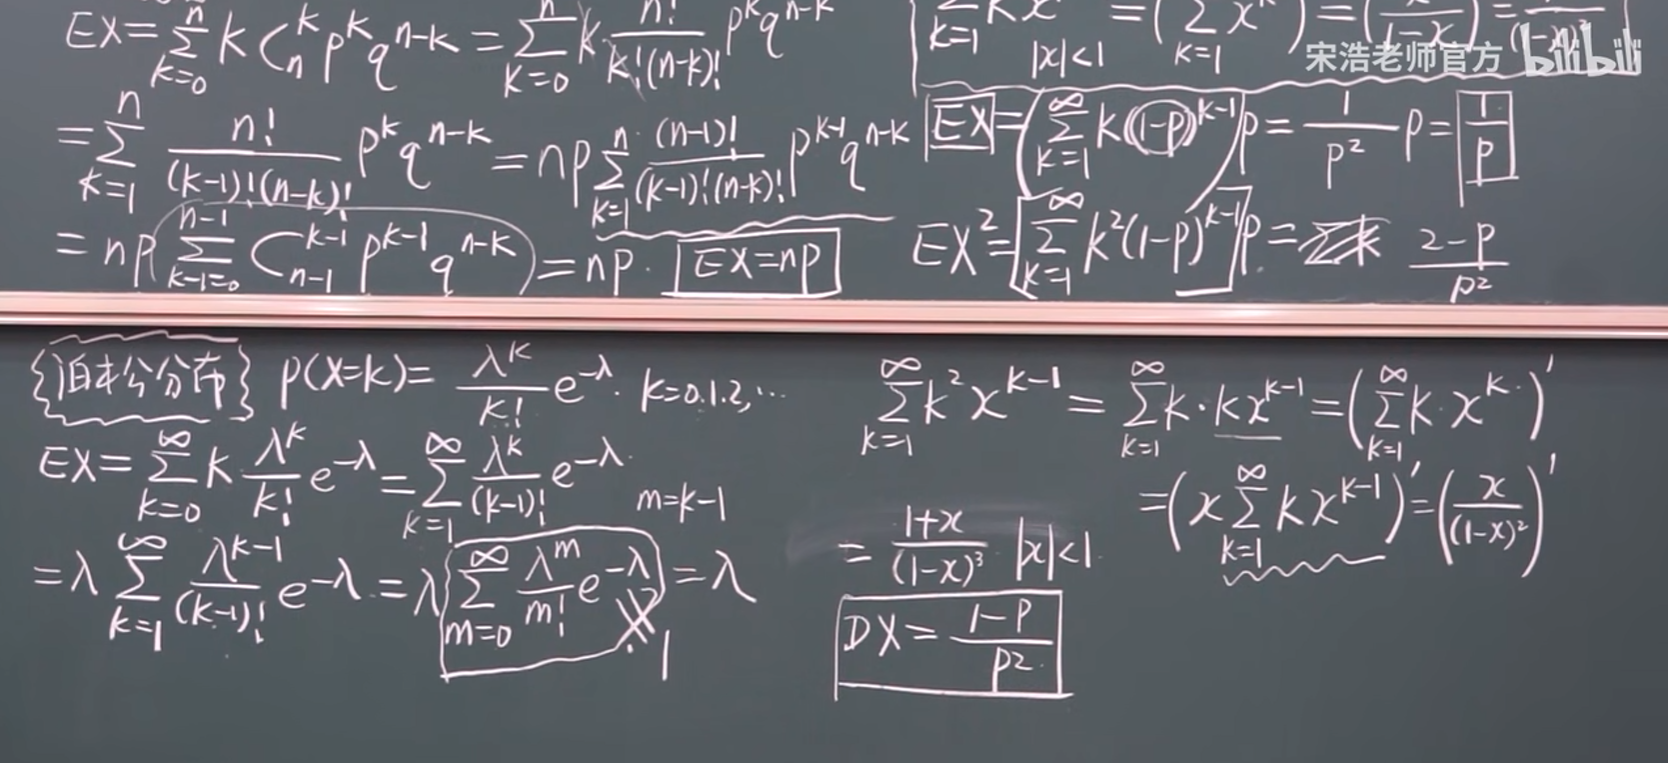 EX = \sum_{k=0}^{n} k C_n^k p^k q^{n-k} = \sum_{k=0}^{n} k \cdot \frac{n!}{k!(n-k)!} p^k q^{n-k}
= \sum_{k=1}^{n} \frac{n!}{(k-1)!(n-k)!} p^k q^{n-k} = np \sum_{k=1}^{n} \frac{(n-1)!}{(k-1)!(n-k)!} p^{k-1} q^{n-k}
= np \sum_{k-1=0}^{n-1} C_{n-1}^{k-1} p^{k-1} q^{n-k} = np. EX=np
宋浩老师官方 bilibili
EX = (\sum_{k=1}^{\infty} k(1-p)^{k-1}) p = \frac{1}{p^2} p = \frac{1}{p}
EX^2 = [\sum_{k=1}^{\infty} k^2 (1-p)^{k-1}] p = \frac{2-p}{p^2}
{泊松分布} P(X=k) = \frac{\lambda^k}{k!} e^{-\lambda}. k=0.1.2,…
EX = \sum_{k=0}^{\infty} k \frac{\lambda^k}{k!} e^{-\lambda} = \sum_{k=1}^{\infty} \frac{\lambda^k}{(k-1)!} e^{-\lambda}.
m=k-1
= \lambda \sum_{k=1}^{\infty} \frac{\lambda^{k-1}}{(k-1)!} e^{-\lambda} = \lambda \sum_{m=0}^{\infty} \frac{\lambda^m}{m!} e^{-\lambda} = \lambda
1
\sum_{k=1}^{\infty} k^2 x^{k-1} = \sum_{k=1}^{\infty} k \cdot k x^{k-1} = (\sum_{k=1}^{\infty} k \cdot x^k)'
= (x \sum_{k=1}^{\infty} k x^{k-1})' = (\frac{x}{(1-x)^2})'
= \frac{1+x}{(1-x)^3} |x|<1.
DX = \frac{1-p}{p^2}